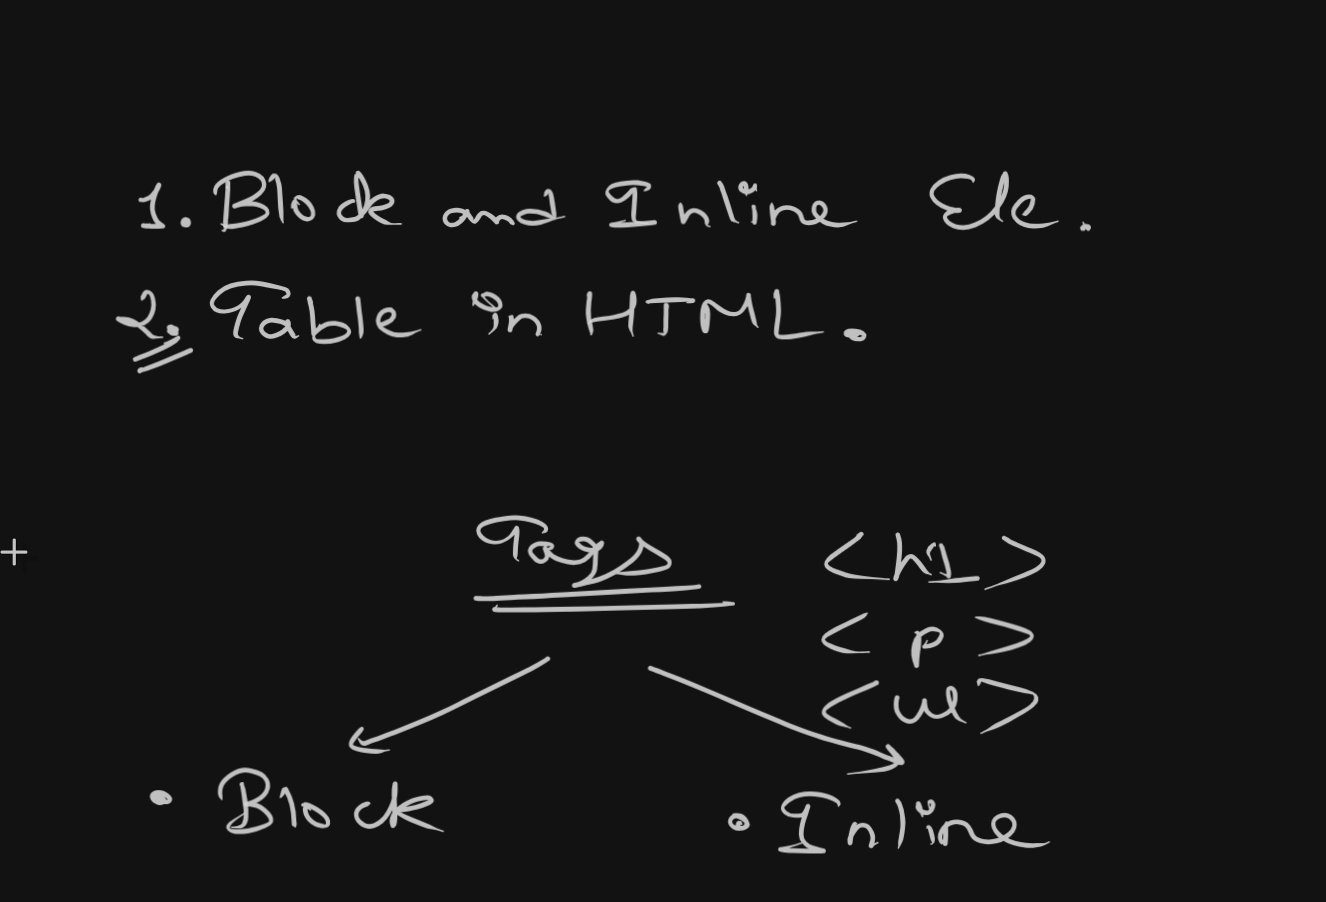 1. Block and Inline Ele.
2. Table in HTML.
Tags
<h1>
<p>
<ul>
• Block
• Inline